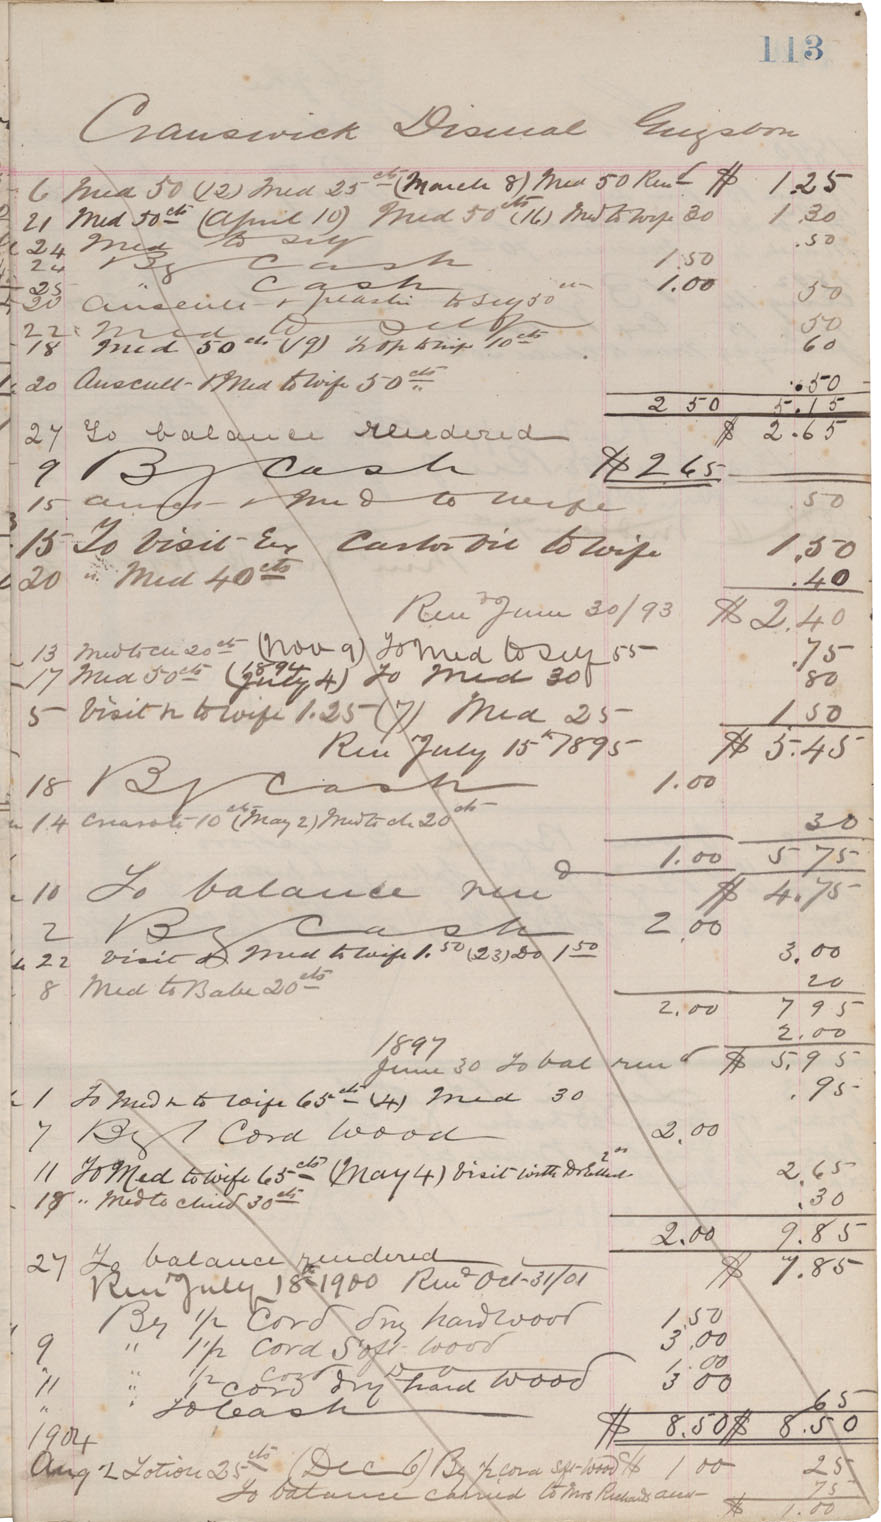 113
Cranswick Dismal Guysboro
6 Med 50 (12) Med 25cts (March 8) Med 50 Rend $ 1.25
21 Med 50cts (April 10) Med 50cts (16) Med to wife 30 1.30
24 Med to self .50
24 By Cash 1.50
25 " Cash 1.00
20 Auscult + plastic to self 50cts 50
22 Med to self 50
18 Med 50cts (19) to wife 10cts 60
20 Auscult + Med to wife 50cts .50
2 50 5.15
27 To balance rendered $ 2.65
9 By Cash $2.65
15 Ausc + Med to wife .50
15 To Visit Castor Oil to wife 1.50
20 " Med 40cts .40
Rend June 30/93 $2.40
13 Med to ch 20cts (Nov 9) To Med to self 55 .75
17 Med 50cts (July 4) 1894 To Med 30 80
5 Visit + to wife 1.25 (7) Med 25 1 50
Ren July 15th 1895 $ 5.45
18 By Cash 1.00
14 Creasote 10cts (May 2) Med to ch 20cts 30
1.00 5 75
10 To balance rend $ 4.75
2 By Cash 2.00
22 Visit & Med to wife 1.50 (23) Do 1 50 3.00
8 Med to Babe 20cts 20
2.00 7 95
2.00
1897
June 30 To bal rend $ 5.95
1 To Med + to wife 65cts (4) Med 30 .95
7 By 1 Cord Wood 2.00
11 To Med to wife 65cts (May 4) Visit with Dr 2.00 2.65
18 " Med to child 30cts .30
2.00 9.85
27 To balance rendered $ 7.85
Rend July 18th 1900 Rend Oct 31/01
By 1/2 Cord dry hardwood 1.50
9 " 1 1/2 Cord Soft wood 3.00
" " 1/2 Cord Do 1.00
11 " 1 cord dry hard wood 3 00
" " To Cash 65
$ 8.50 $ 8.50
1904
Aug 2 Lotion 25cts (Dec 6) By 1/2 cord sft wood $ 1 00 25
To balance carried to Mrs Richards acct 75
$ 1.00